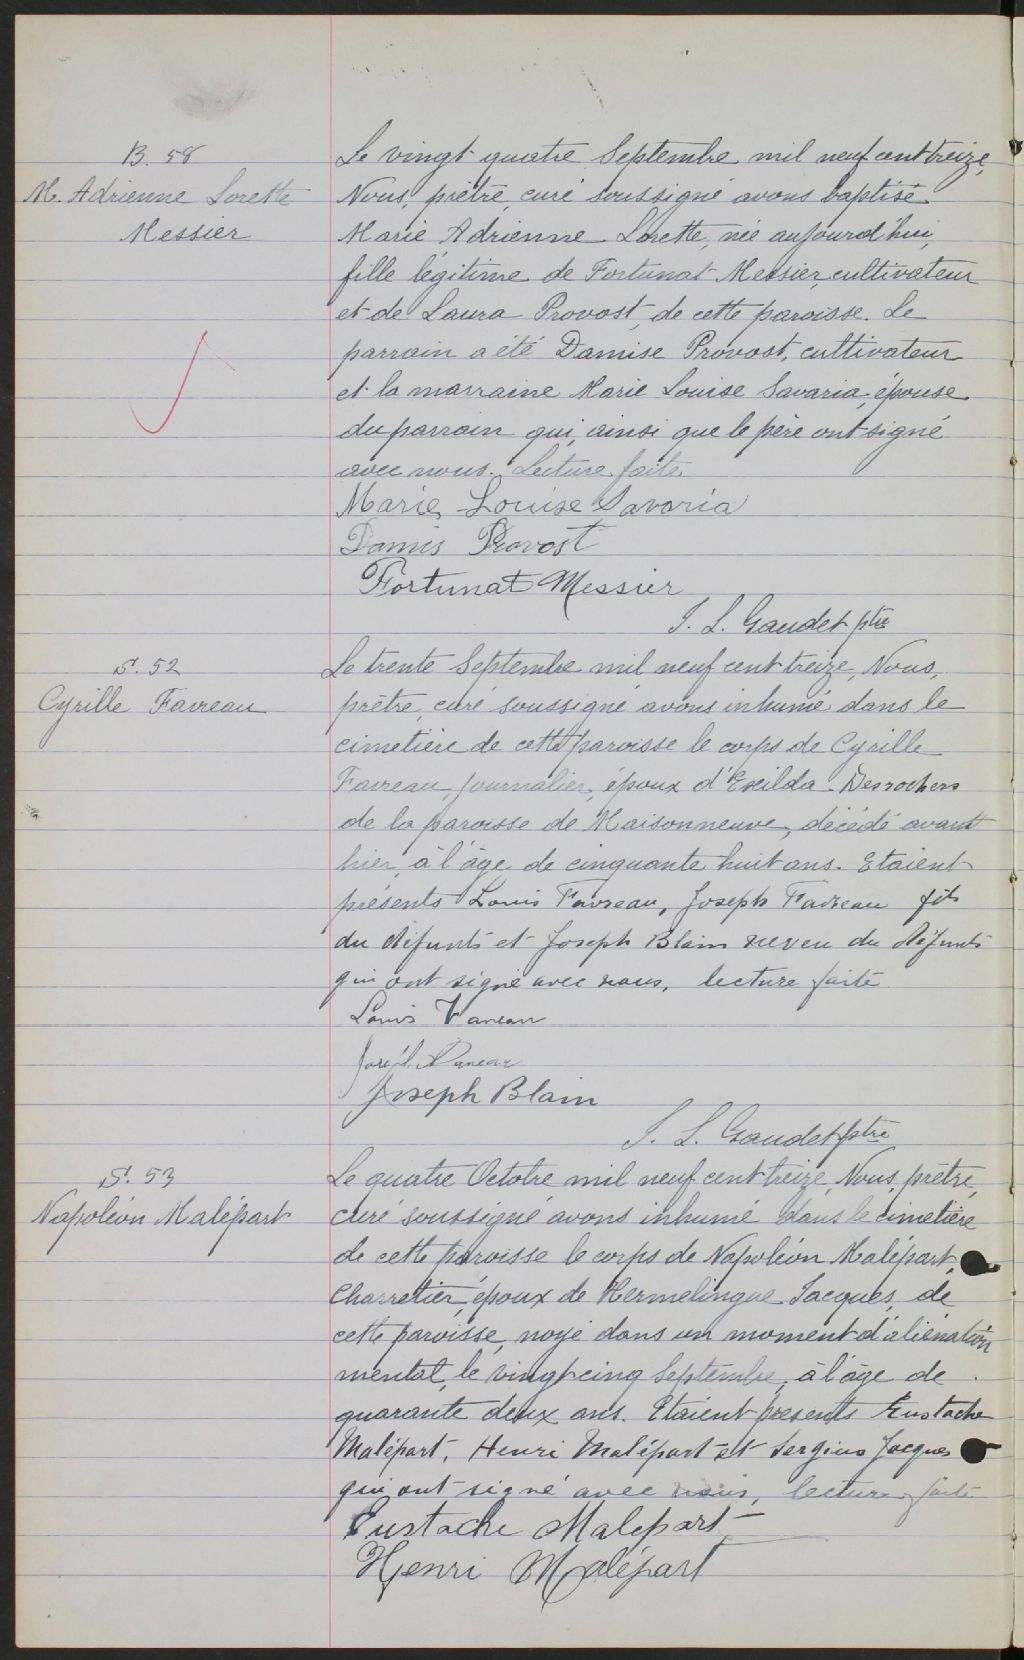 B. 58
M. Adrienne Lorette
Messier
Le vingt quatre Septembre mil neuf cent treize,
Nous, prêtre, curé soussigné avons baptisé
Marie Adrienne Lorette, née aujourd'hui,
fille légitime de Fortunat Messier, cultivateur
et de Laura Provost, de cette paroisse. Le
parrain a été Damise Provost, cultivateur
et la marraine Marie Louise Savaria, épouse
du parrain qui, ainsi que le père ont signé
avec nous. Lecture faite.
Marie Louise Savaria
Damis Provost
Fortunat Messier
J. L. Gaudet ptre
S. 52
Cyrille Favreau
Le trente Septembre mil neuf cent treize, Nous,
prêtre, curé soussigné avons inhumé dans le
cimetière de cette paroisse le corps de Cyrille
Favreau, journalier, époux d'Exilda Desrochers
de la paroisse de Maisonneuve, décédé avant
hier, à l'âge de cinquante huit ans. Etaient
présents Louis Favreau, Joseph Favreau fils
du défunt et Joseph Blain neveu du défunt
qui ont signé avec nous, lecture faite
Louis Favreau
Joseph Favreau
Joseph Blain
J. L. Gaudet ptre
S. 53
Napoléon Malépart
Le quatre Octobre mil neuf cent treize, Nous, prêtre,
curé soussigné avons inhumé dans le cimetière
de cette paroisse le corps de Napoléon Malépart,
Charretier, époux de Hermelingue Jacques, de
cette paroisse, noyé dans un moment d'aliénation
mental, le vingt-cinq Septembre, à l'âge de
quarante deux ans. Etaient présents Eustache
Malépart, Henri Malépart et Sergius Jacques
qui ont signé avec nous, lecture faite
Eustache Malepart
Henri Malépart